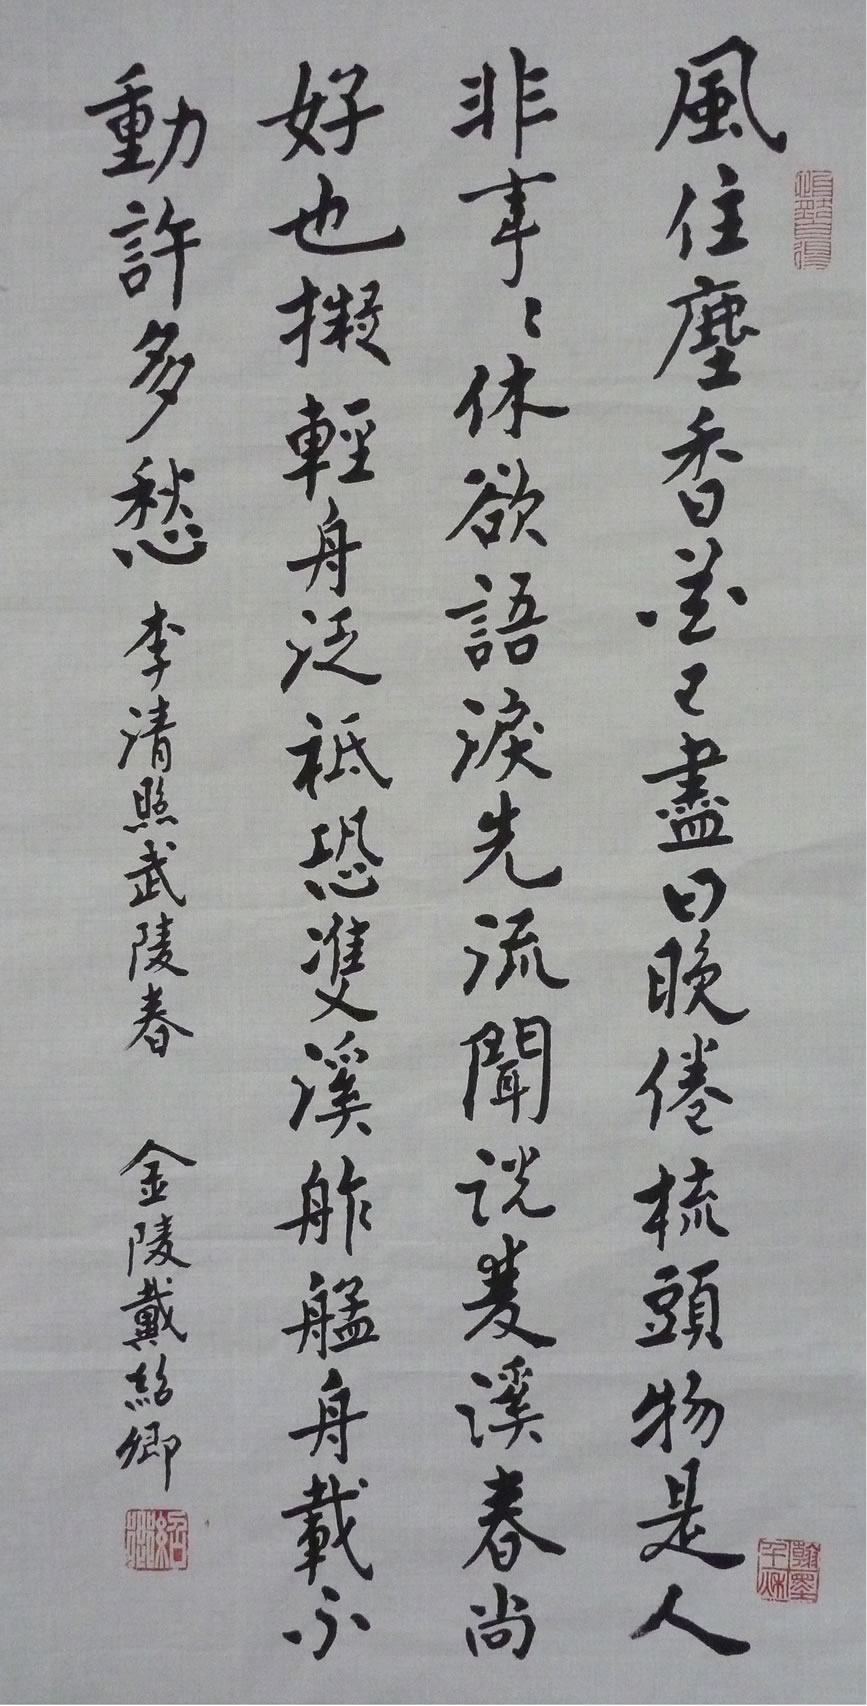 風住塵香花已盡日晚倦梳頭物是人
非事〻休欲語淚先流聞説雙溪春尚
好也擬輕舟泛祗恐雙溪舴艋舟載不
動許多愁 李清照武陵春 金陵戴紹卿
紹卿
翰墨千秋